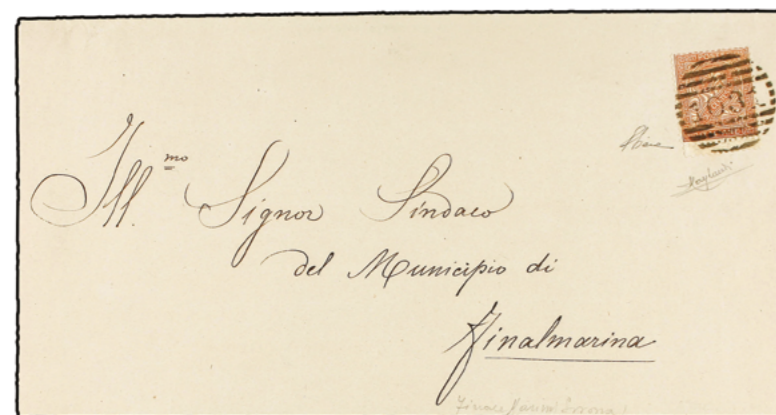 Ill.mo Signor Sindaco
del Municipio di
Finalmarina